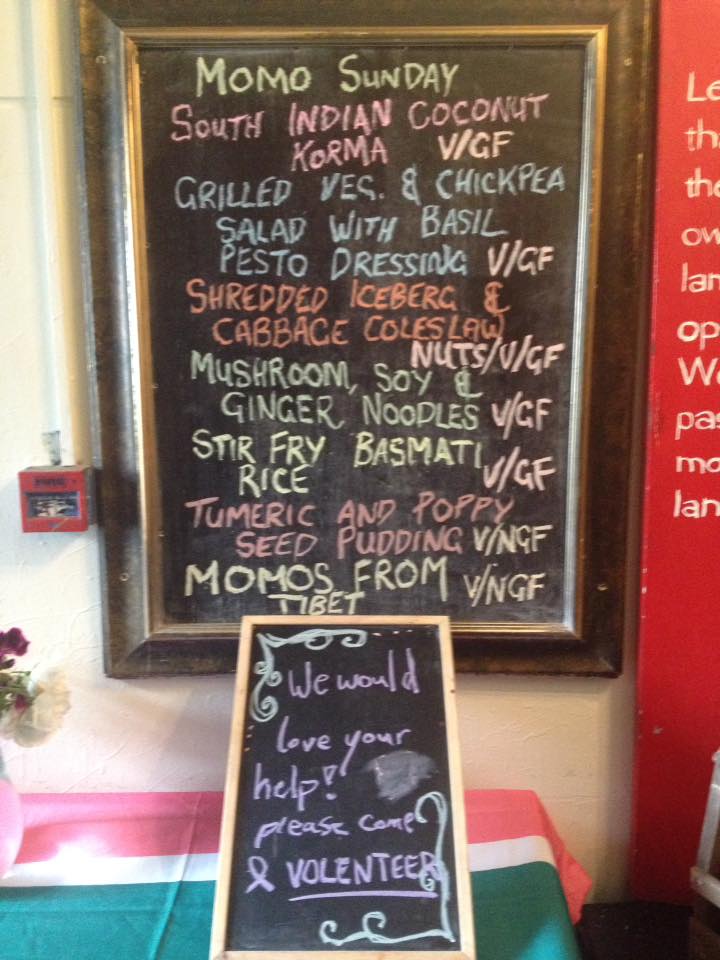 MOMO SUNDAY
SOUTH INDIAN COCONUT
KORMA V/GF
GRILLED VEG. & CHICKPEA
SALAD WITH BASIL
PESTO DRESSING V/GF
SHREDDED ICEBERG &
CABBAGE COLESLAW
NUTS/V/GF
MUSHROOM, SOY &
GINGER NOODLES V/GF
STIR FRY BASMATI
RICE V/GF
TUMERIC AND POPPY
SEED PUDDING V/NGF
MOMOS FROM V/NGF
TIBET
We would
love your
help!
please come
& VOLENTEER
Le
tha
the
ow
lan
op
We
pas
mo
lan